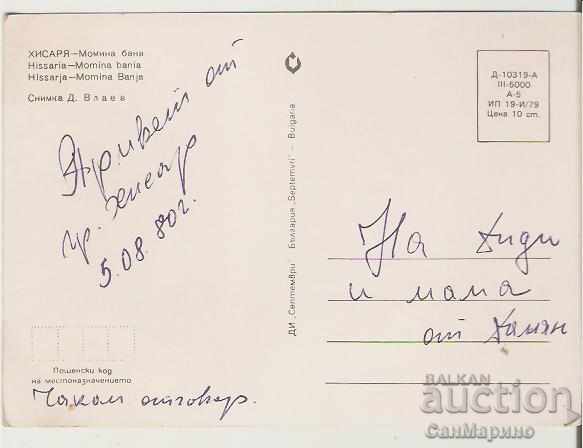 ХИСАРЯ—Момина баня
Hissaria—Momina bania
Hissarja—Momina Banja
Снимка Д. Влаев
Привет от
гр. Хисар
5.08.80г.
Пощенски код
на местоназначението
Чакам отговор.
ДИ „Септември" България „Septemvri" — Bulgaria
Д-10319-А
III-5000
А-5
ИП 19-И/79
Цена 10 ст.
На Диди
и мама
от Дамян
BALKAN
auction
СанМарино